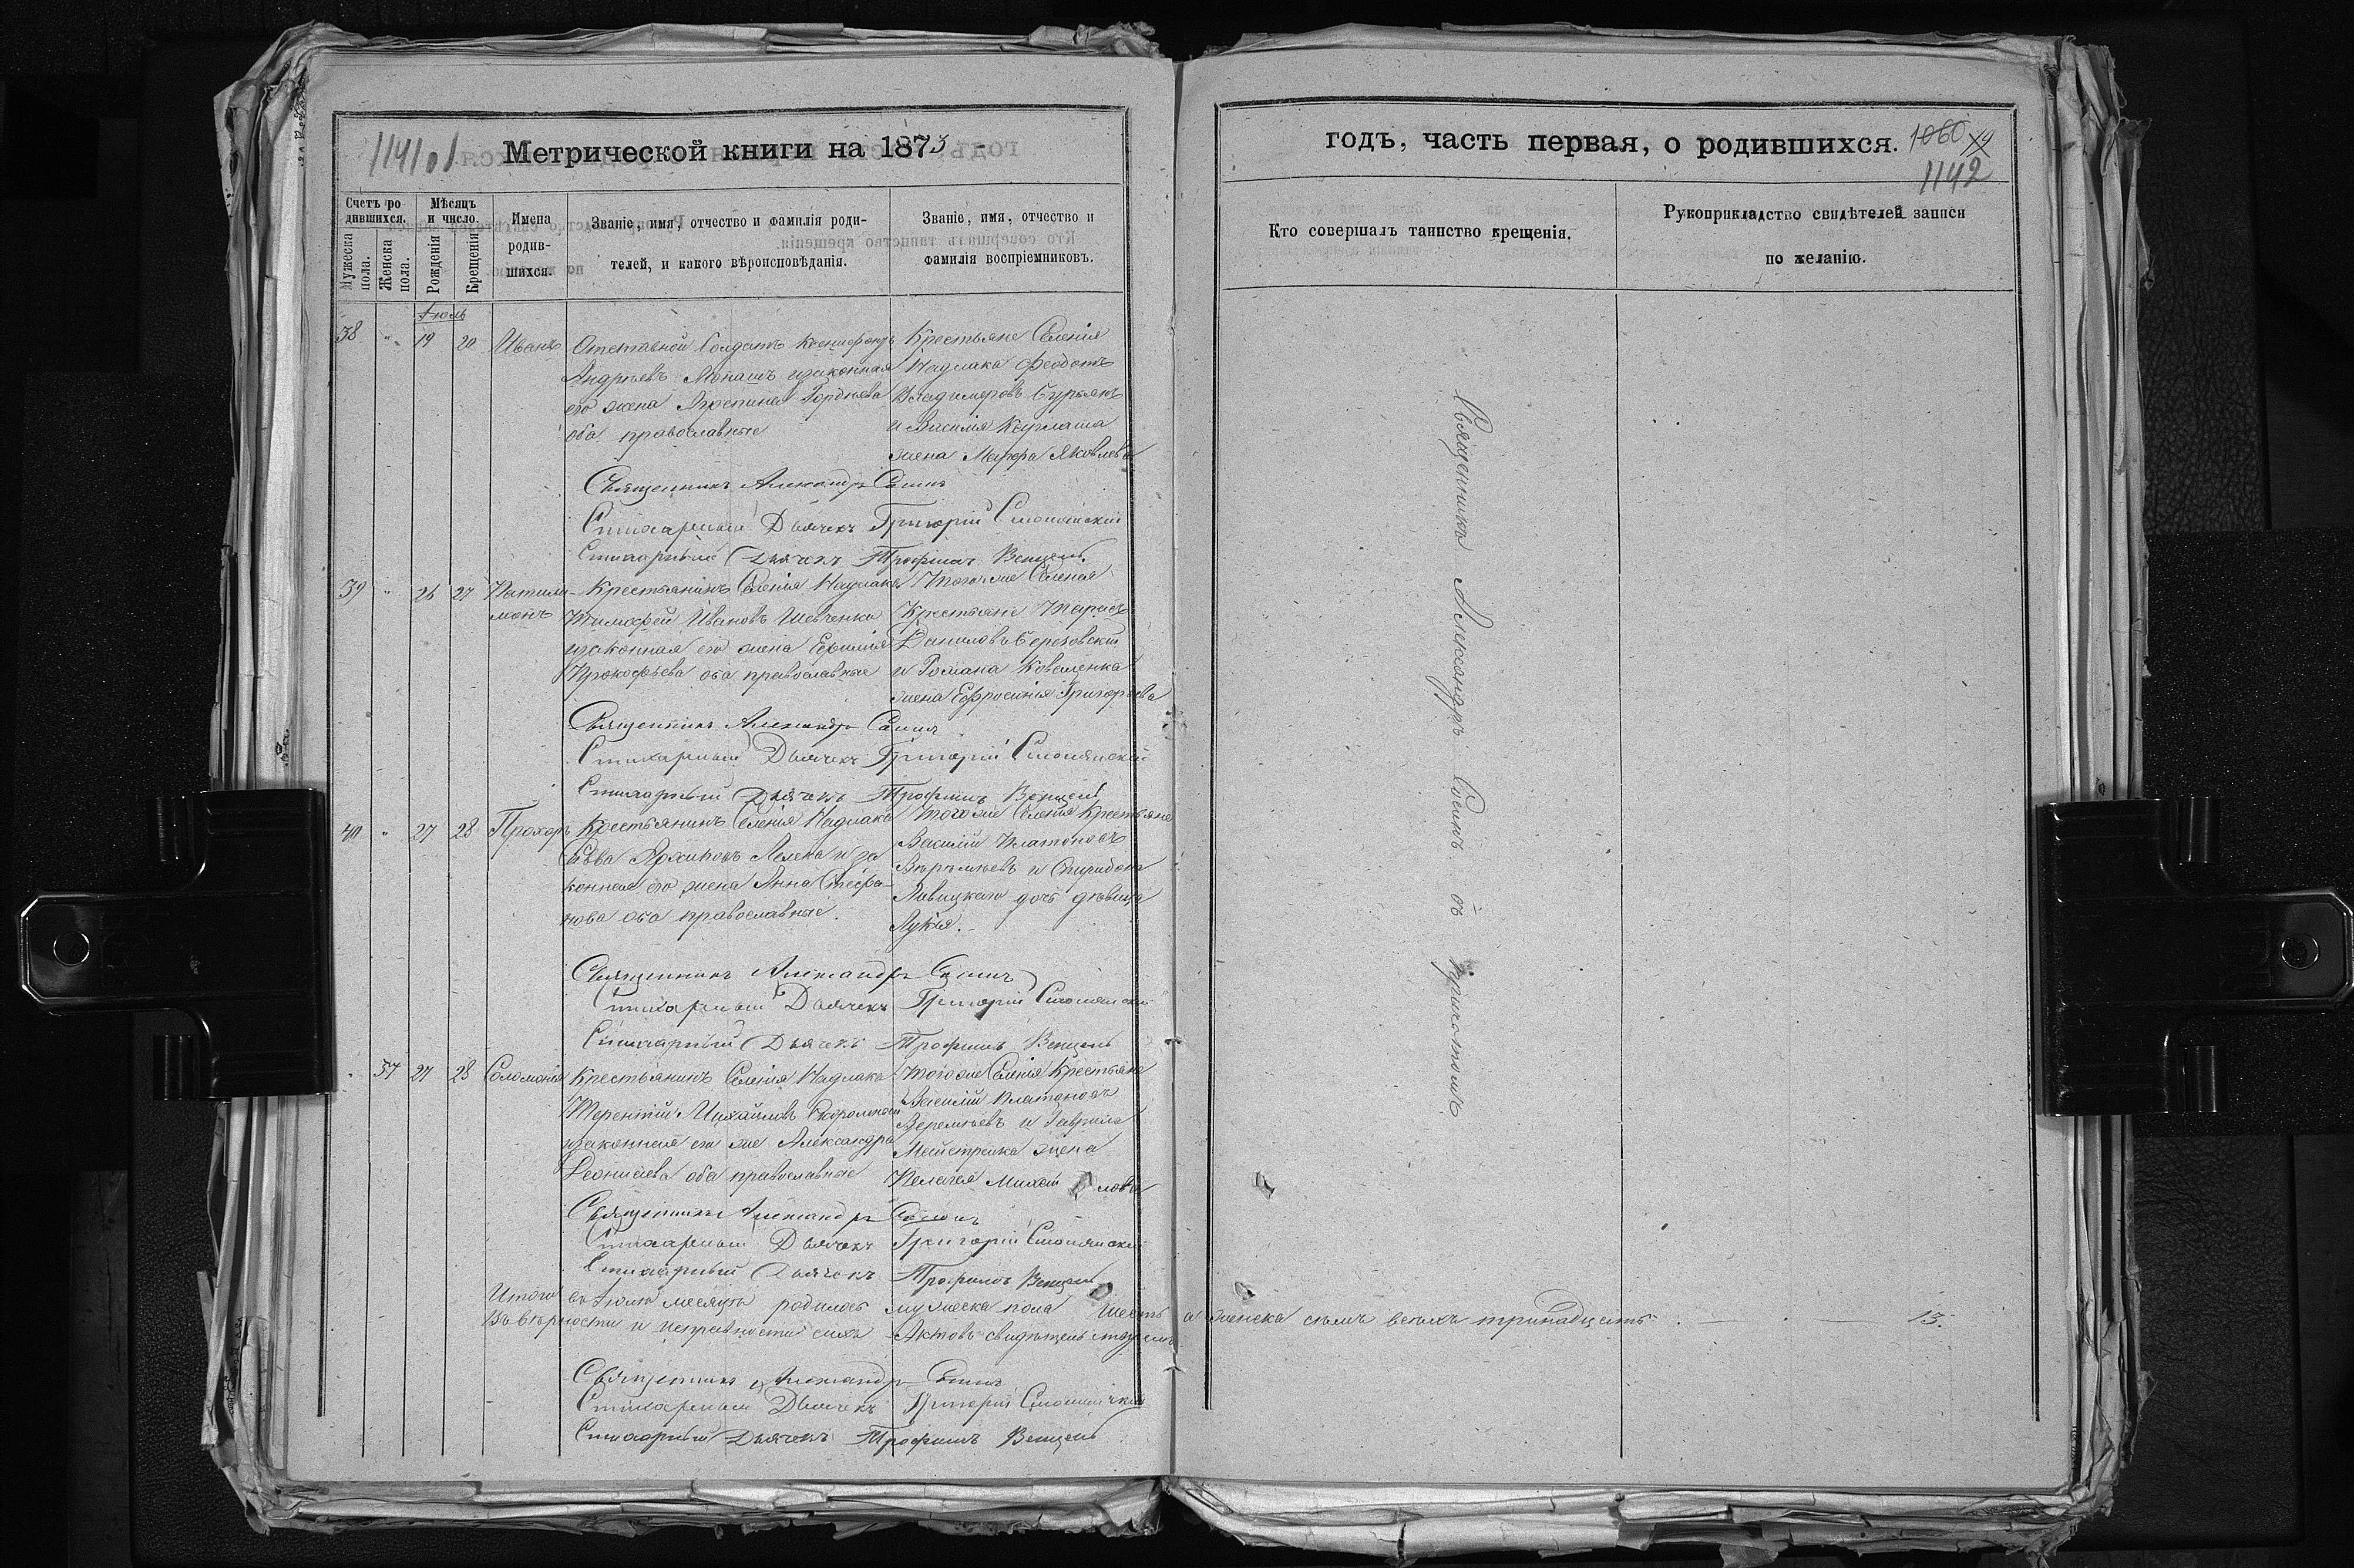 1141 об
Метрической книги на 1873
годъ, часть первая, о родившихся.
1060
1142
Счетъ родившихся.
Мужеска пола.
Женска пола.
Мѣсяцъ и число.
Рожденія
Крещенія
Имена родившихся.
Званіе, имя, отчество и фамилія родителей, и какого вѣроисповѣданія.
Званіе, имя, отчество и фамилія воспріемниковъ.
Кто совершалъ таинство крещенія.
Рукоприкладство свидѣтелей записи по желанію.
Іюль
38 " 19 20 Иванъ
Отставной Солдатъ Ксенофонтъ
Андреевъ Монашъ изаконная
его жена Агрепина Гордѣева
оба православные
Крестьяне Селенія
Надлака Феодотъ
Владимеровъ Бурьянъ
и Василія
жена Яковлева
Священникъ Александръ
Стихарный Дьячекъ Григорій
Стихарный Дьячекъ Трофимъ Венцель
39 " 26 27 Пантили-
монъ
Крестьянинъ Селенія Надлака
Тимофей Ивановъ Шевченко
изаконная его жена Евфимія
Прокофьева оба православные
Тогоже Селенія
Крестьяне Тарасъ
Даниловъ Березовскій
и Романа Коваленка
жена Ефросинія Григорьева
Священникъ Александръ
Стихарный Дьячекъ Григорій
Стихарный Дьячекъ Трофимъ Венцель
40 " 27 28 Прохоръ
Крестьянинъ Селенія Надлака
Сава Архиповъ Лелека и за
конная его жена Анна Стефа-
нова оба православные.
Тогоже Селенія Крестьяне
Василій Платоновъ
и Спиридона
Ливицкаго дочь дѣвица
Лукія.
Священникъ Александръ
Стихарный Дьячекъ Григорій
Стихарный Дьячекъ Трофимъ Венцель
" 37 27 28 Соломонія
Крестьянинъ Селенія Надлака
Терентій Михайловъ
изаконная его же Александра
Деонисіева оба православные
Тогоже Селенія Крестьяне
Василій Платоновъ
Веремѣевъ и Гаврила
жена
Пелагея Михайлова
Священникъ Александръ
Стихарный Дьячекъ Григорій
Стихарный Дьячекъ Трофимъ Венцель
Итого въ Іюлѣ месяцѣ родилось мужеска пола шесть а женска семь всехъ тринадцать. 13.
Въ вѣрности и исправности сихъ Актовъ свидѣтельствуемъ
Священникъ Александръ
Стихарный Дьячекъ Григорій
Стихарный Дьячекъ Трофимъ Венцель
Священникъ Александръ съ причетомъ